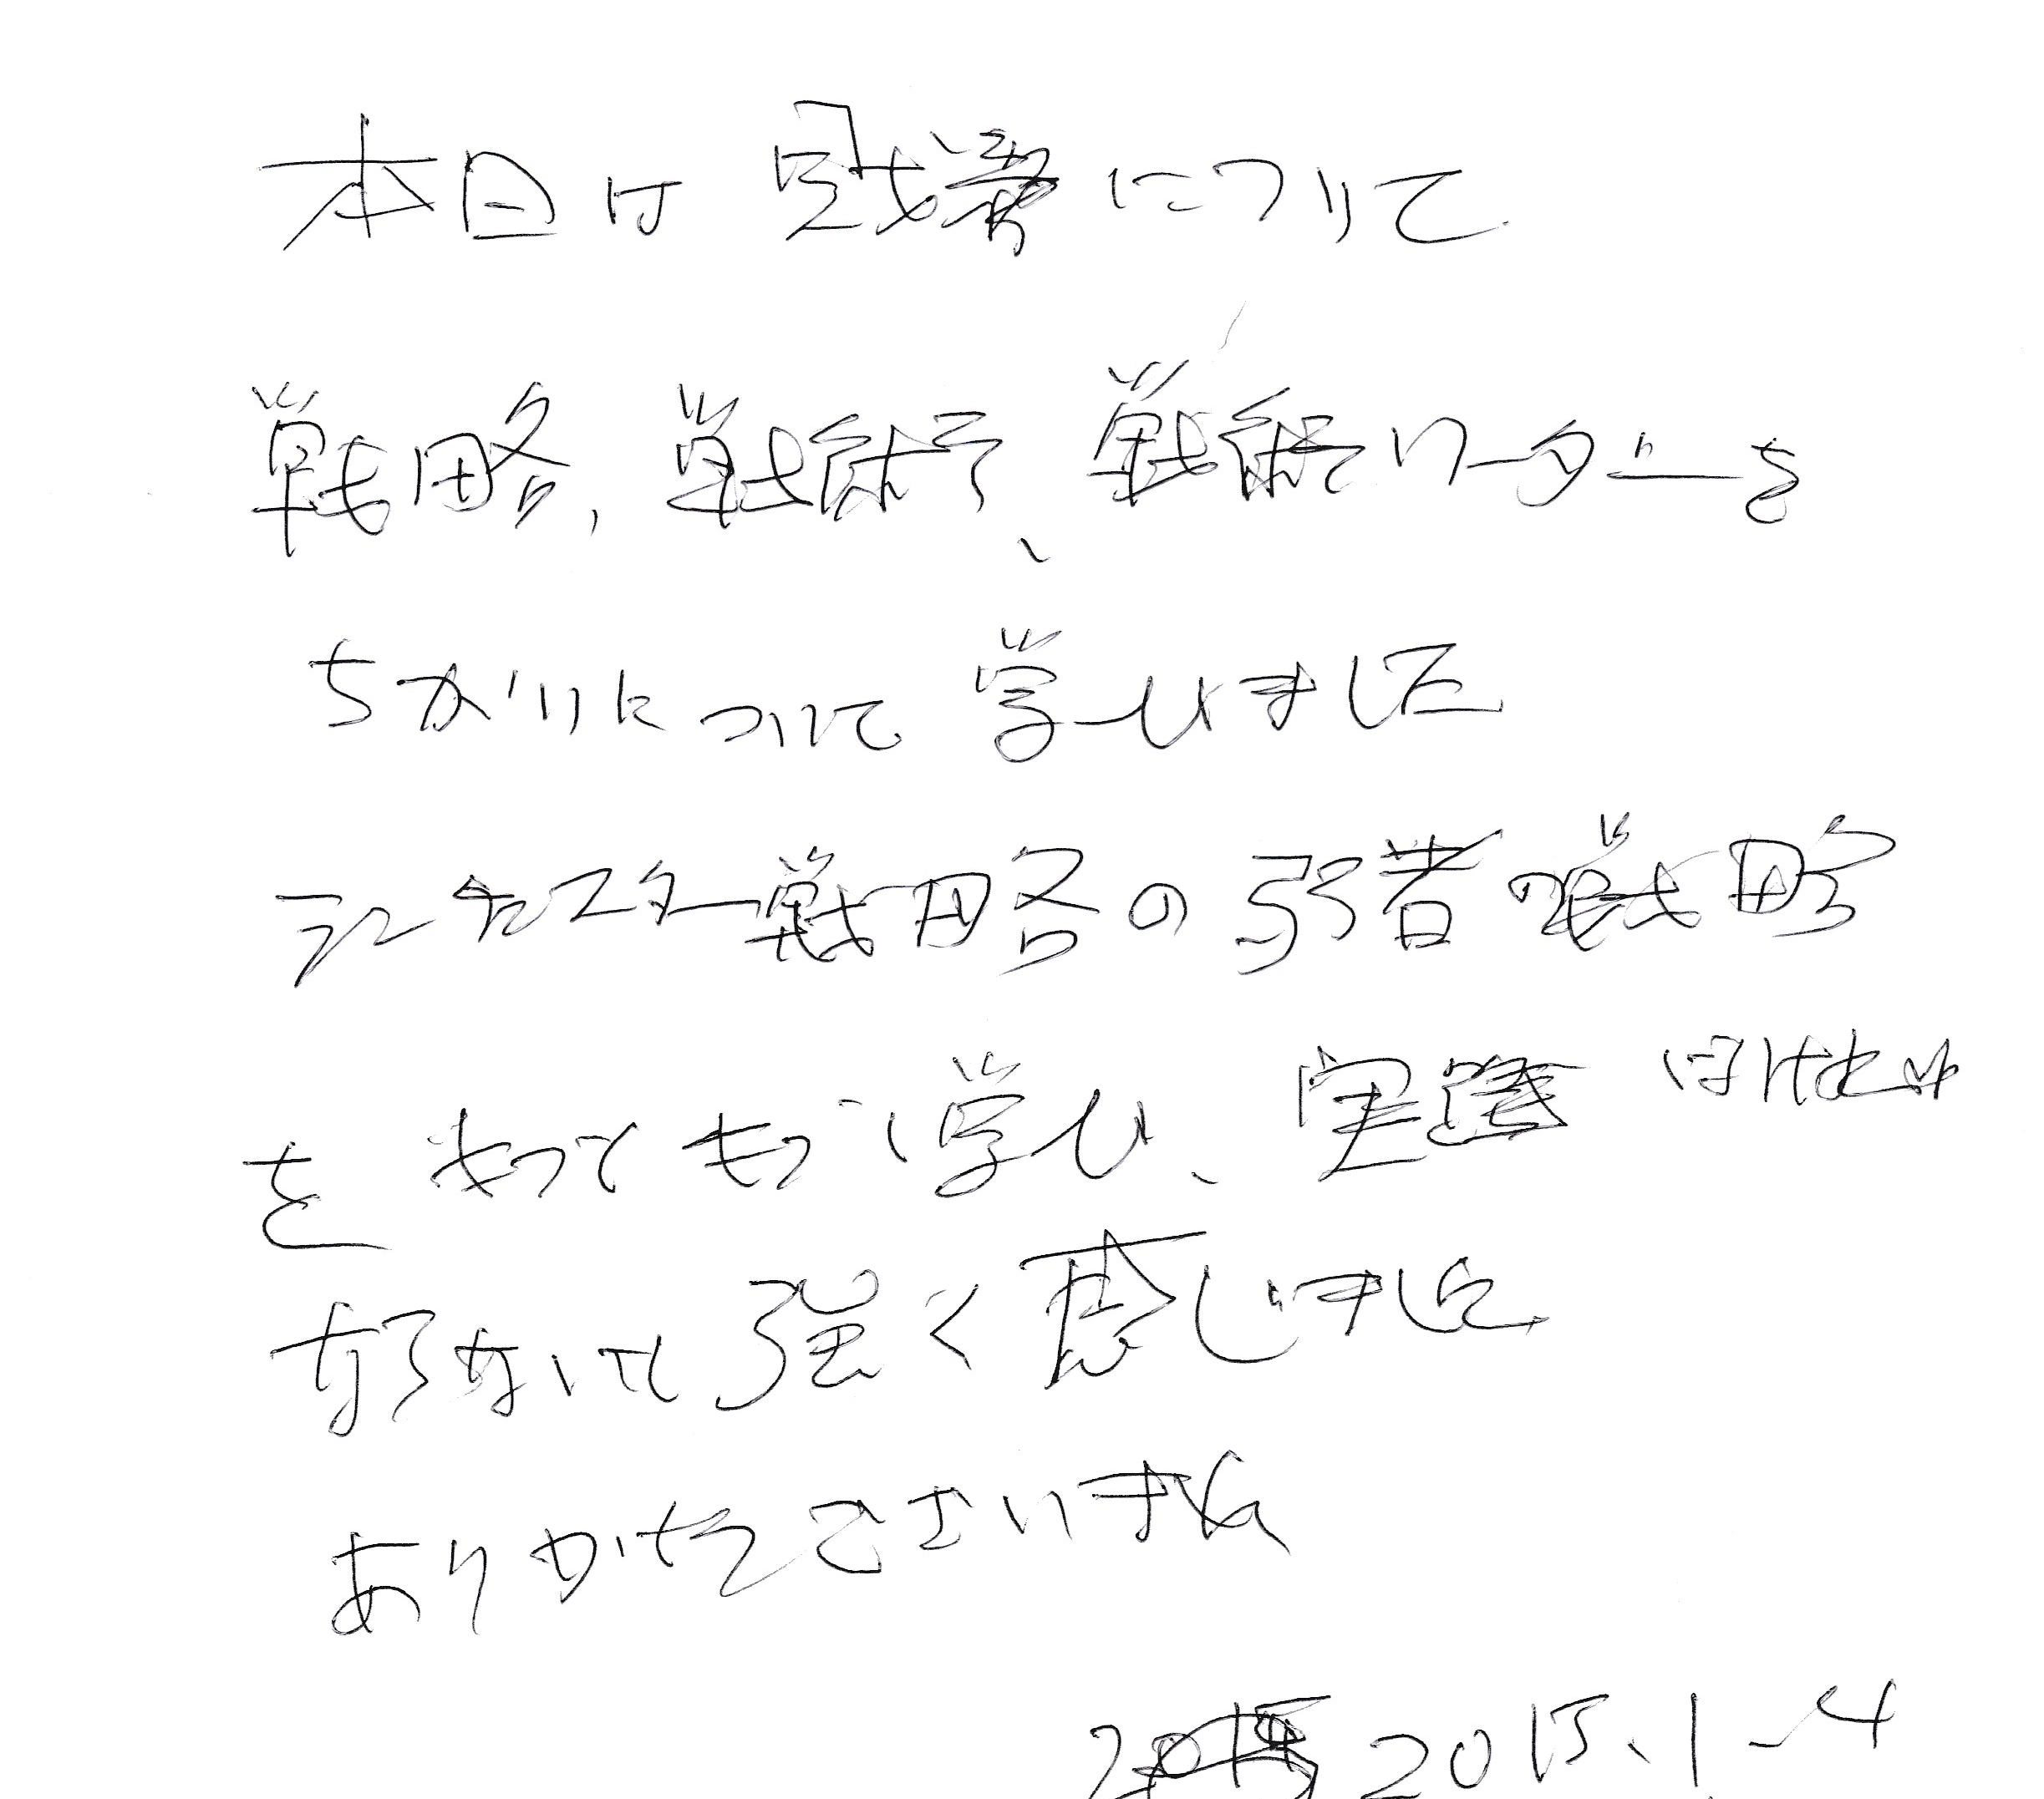 本日は について
戦略、戦術、戦術リーダーを
ちがいについて学びました
ランチェスター戦略の弱者の戦略
をもっともっと学び、実践しなければ
ならないと強く感じました。
ありがとうございました
2015.1.4